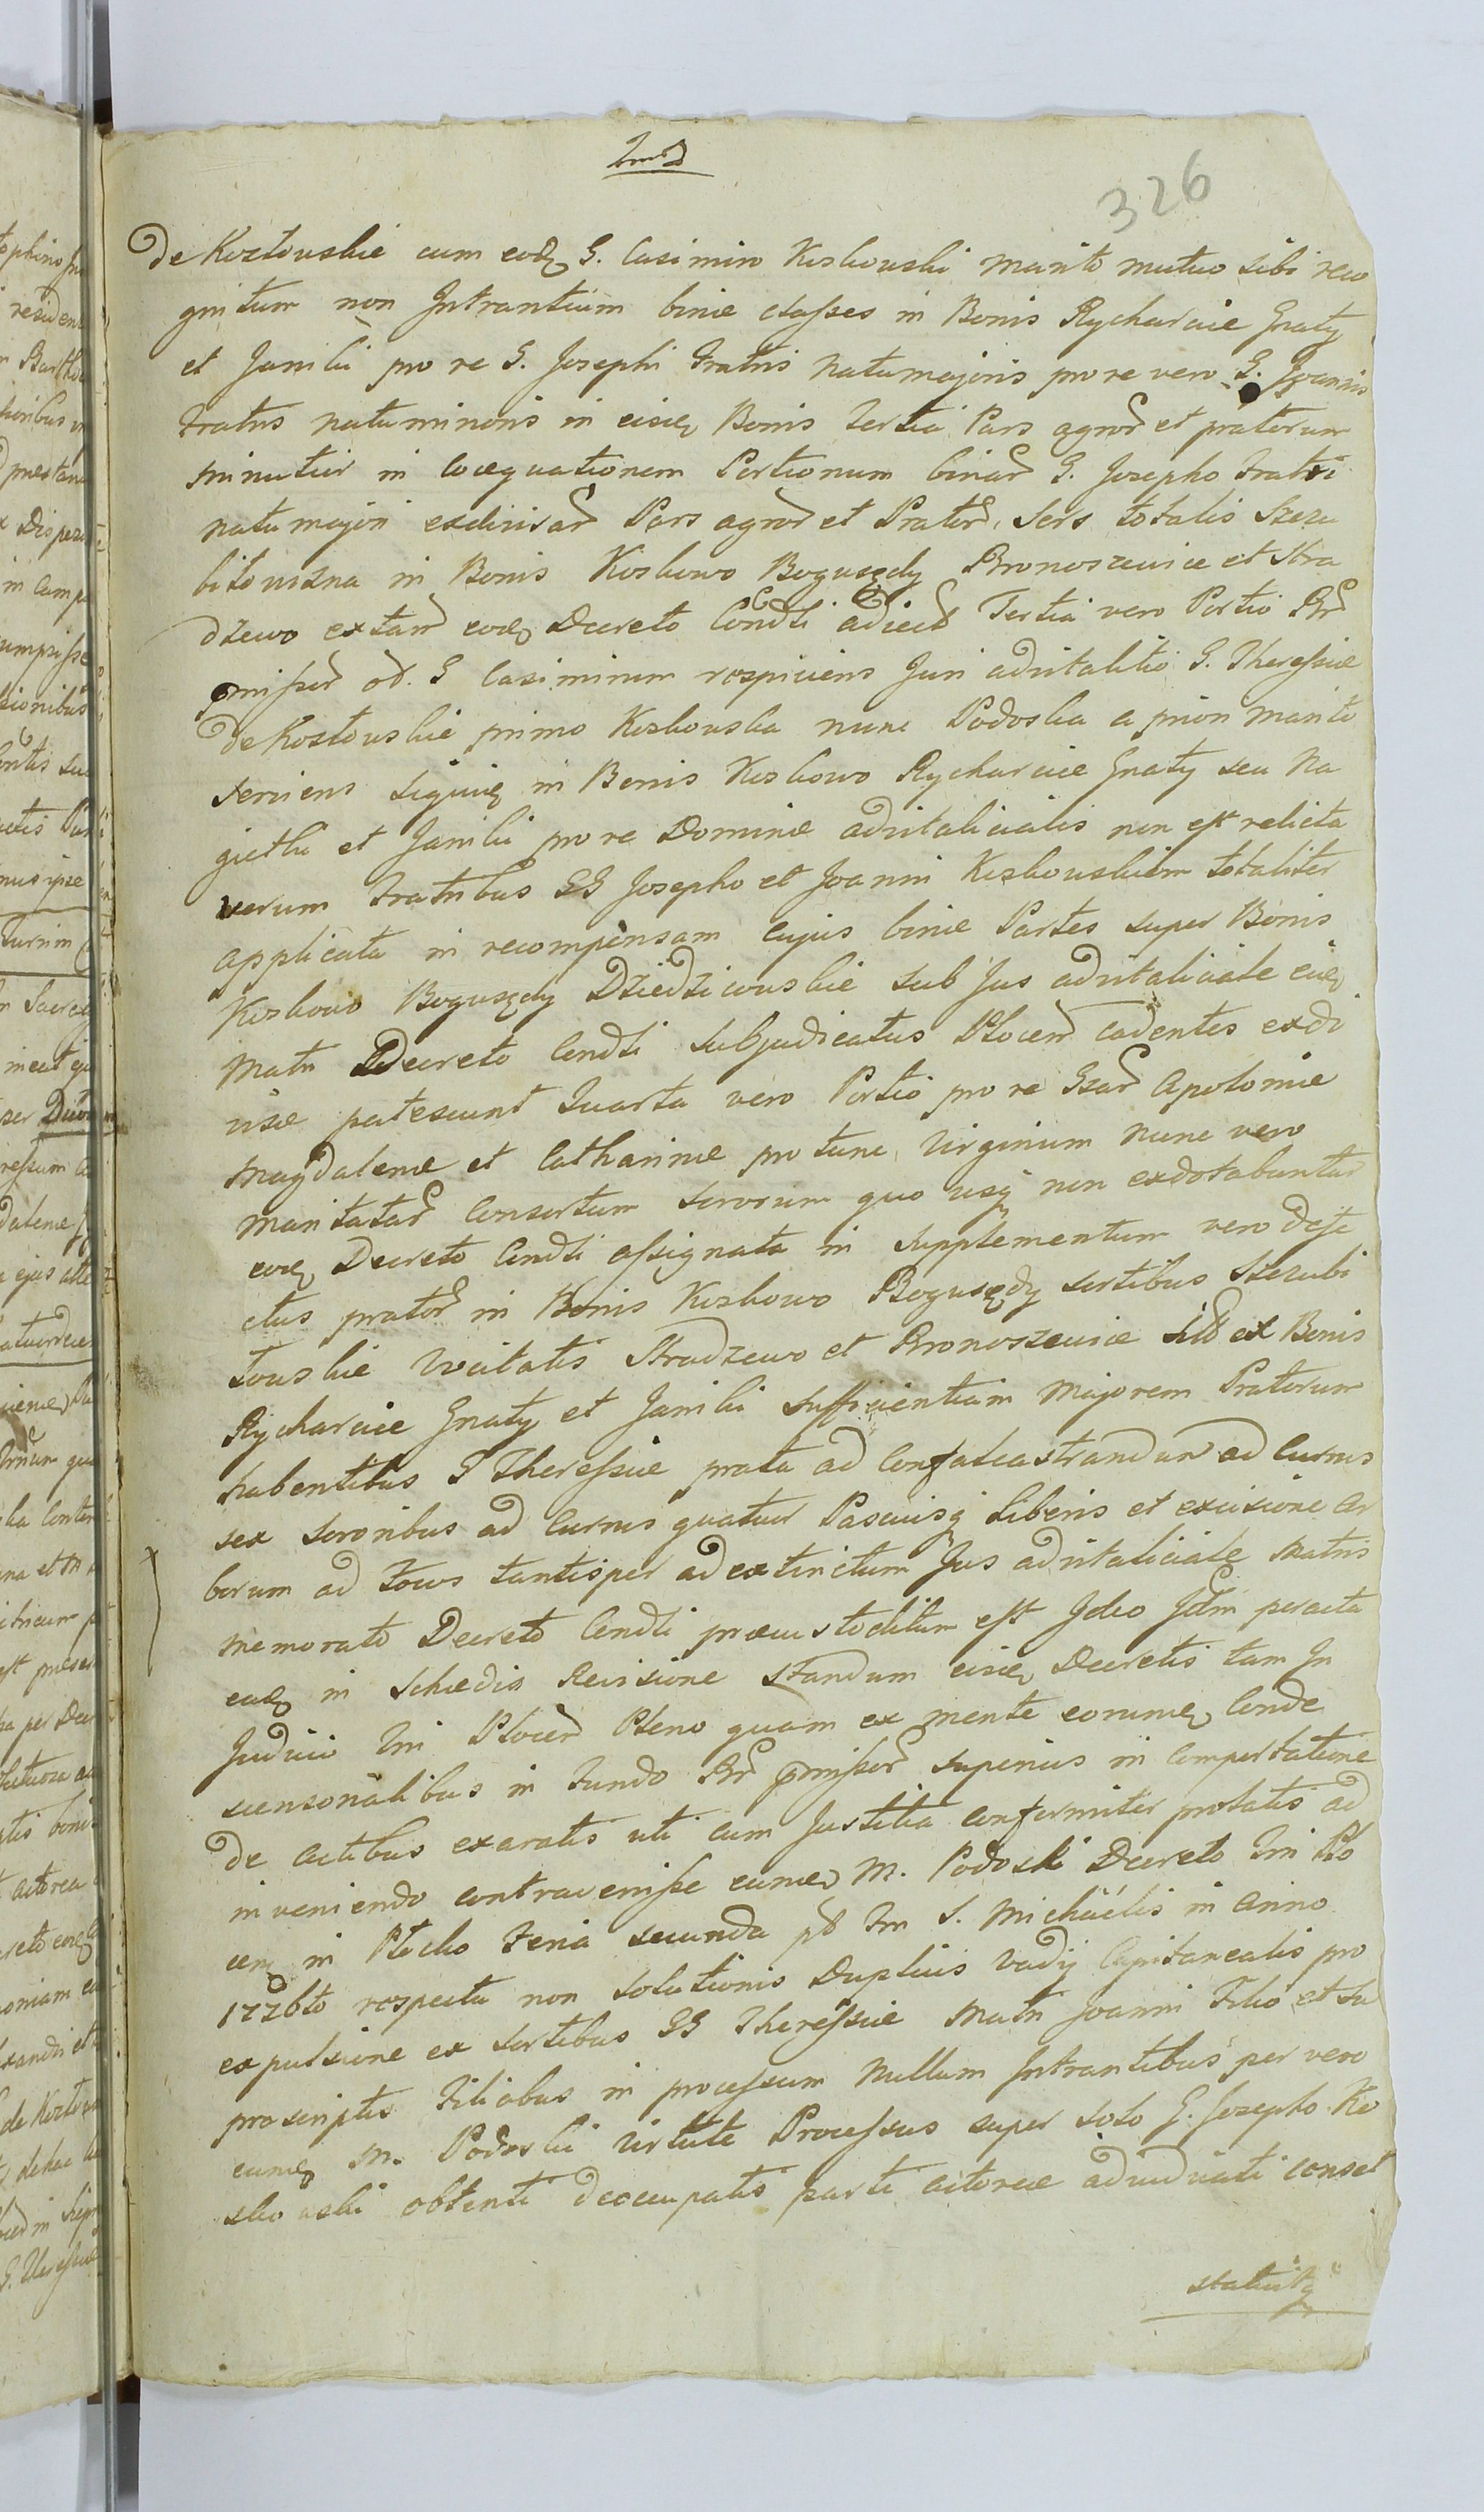 326
de Kozłouskie cum eodq G. Casimiro Koskouski marito mutuo sibi reco
gnitum non Intrantium binæ classes in Bonis Rycharcice Gnaty
et Janiki pro re G. Josephi Fratris natumajoris pro re vero G. Joannis
Fratris natuminoris in eisdq Bonis Tertia Pars agror et pratorum
minutior in coæquationem Portionum binar G. Josepho Fratri
natumajori exdivisar Pars agror et Prator, Sors totalis Szczu
bitouizna in Bonis Koskowo Bogusędy Bronoszewice et Stra
dzewo extan eodq Decreto Condti adject Tertia vero Portio Br
pmissor od. G Casimirum respiciens Juri advitalitio G. Theressiæ
de Kozłouskie primo Koskouska nunc Podoska a priori marito
serviens siquidq in Bonis Koskowo Rycharcice Gnaty seu Na
gietki et Janiki pro re Dominæ advitalicialis non est relicta
verum Fratribus GG Josepho et Joanni Koskouskiem totaliter
applicata in recompensam cujus binæ Partes super Bonis
Koskowo Bogusędy Dziedzicouskie sub Jus advitaliciale eidq
Matri Decreto Condti Subjudicatus Plocen cadentes exdi
visæ patescunt Quarta vero Portio pro re Gsar Apoloniæ
Magdalenæ et Catharinæ pro tunc Virginum nunc vero
maritatar Consortum Sororum quo usq non exdotabuntur
eodq Decreto Condti assignata in Supplementum vero defe
ctus prator in Bonis Koskowo Bogusędy Sortibus Szczubi
touskie vocitatis Stradzewo et Bronoszewice Sitt ex Bonis
Rycharcice Gnaty et Janiki sufficientiam majorem Pratorum
habentibus G Theressiæ prata ad Confalcastrandum ad Currus
sex Sororibus ad Currus quatuor Pascuisq Liberis et excisione Ar
borum ad Focos tantisper ad extinctum Jus advitaliciale Matris
memorato Decreto Condti præcustoditum est Ideo Jdm peracta
eadq in Schedis Revisione Standum eisdq Decretis tam In
Judicio Tri Plocen Pleno quam ex mente eorumdq Conde
scensorialibus in Fundo Br pmissor superius in Comportatione
de Actibus exaratis uti cum Justitia conformiter prolatis ad
inveniendo contravenisse eumdq M. Podoski Decreto Tri Plo
cen in Plocko Feria secunda pt Fm S. Michaëlis in Anno
1776to respectu non Solutionis Duplicis Vadij Capitanealis pro
expulsione ex Sortibus GG Theressiæ Matri Joanni Filio et Su
prascriptis Filiabus in processum Nullum Intrantibus per vero
eumdq M. Podoski virtute Processus super solo G. Josepho Ko
skouski obtenti deoccupatis parti Actoreæ adjudicati conset